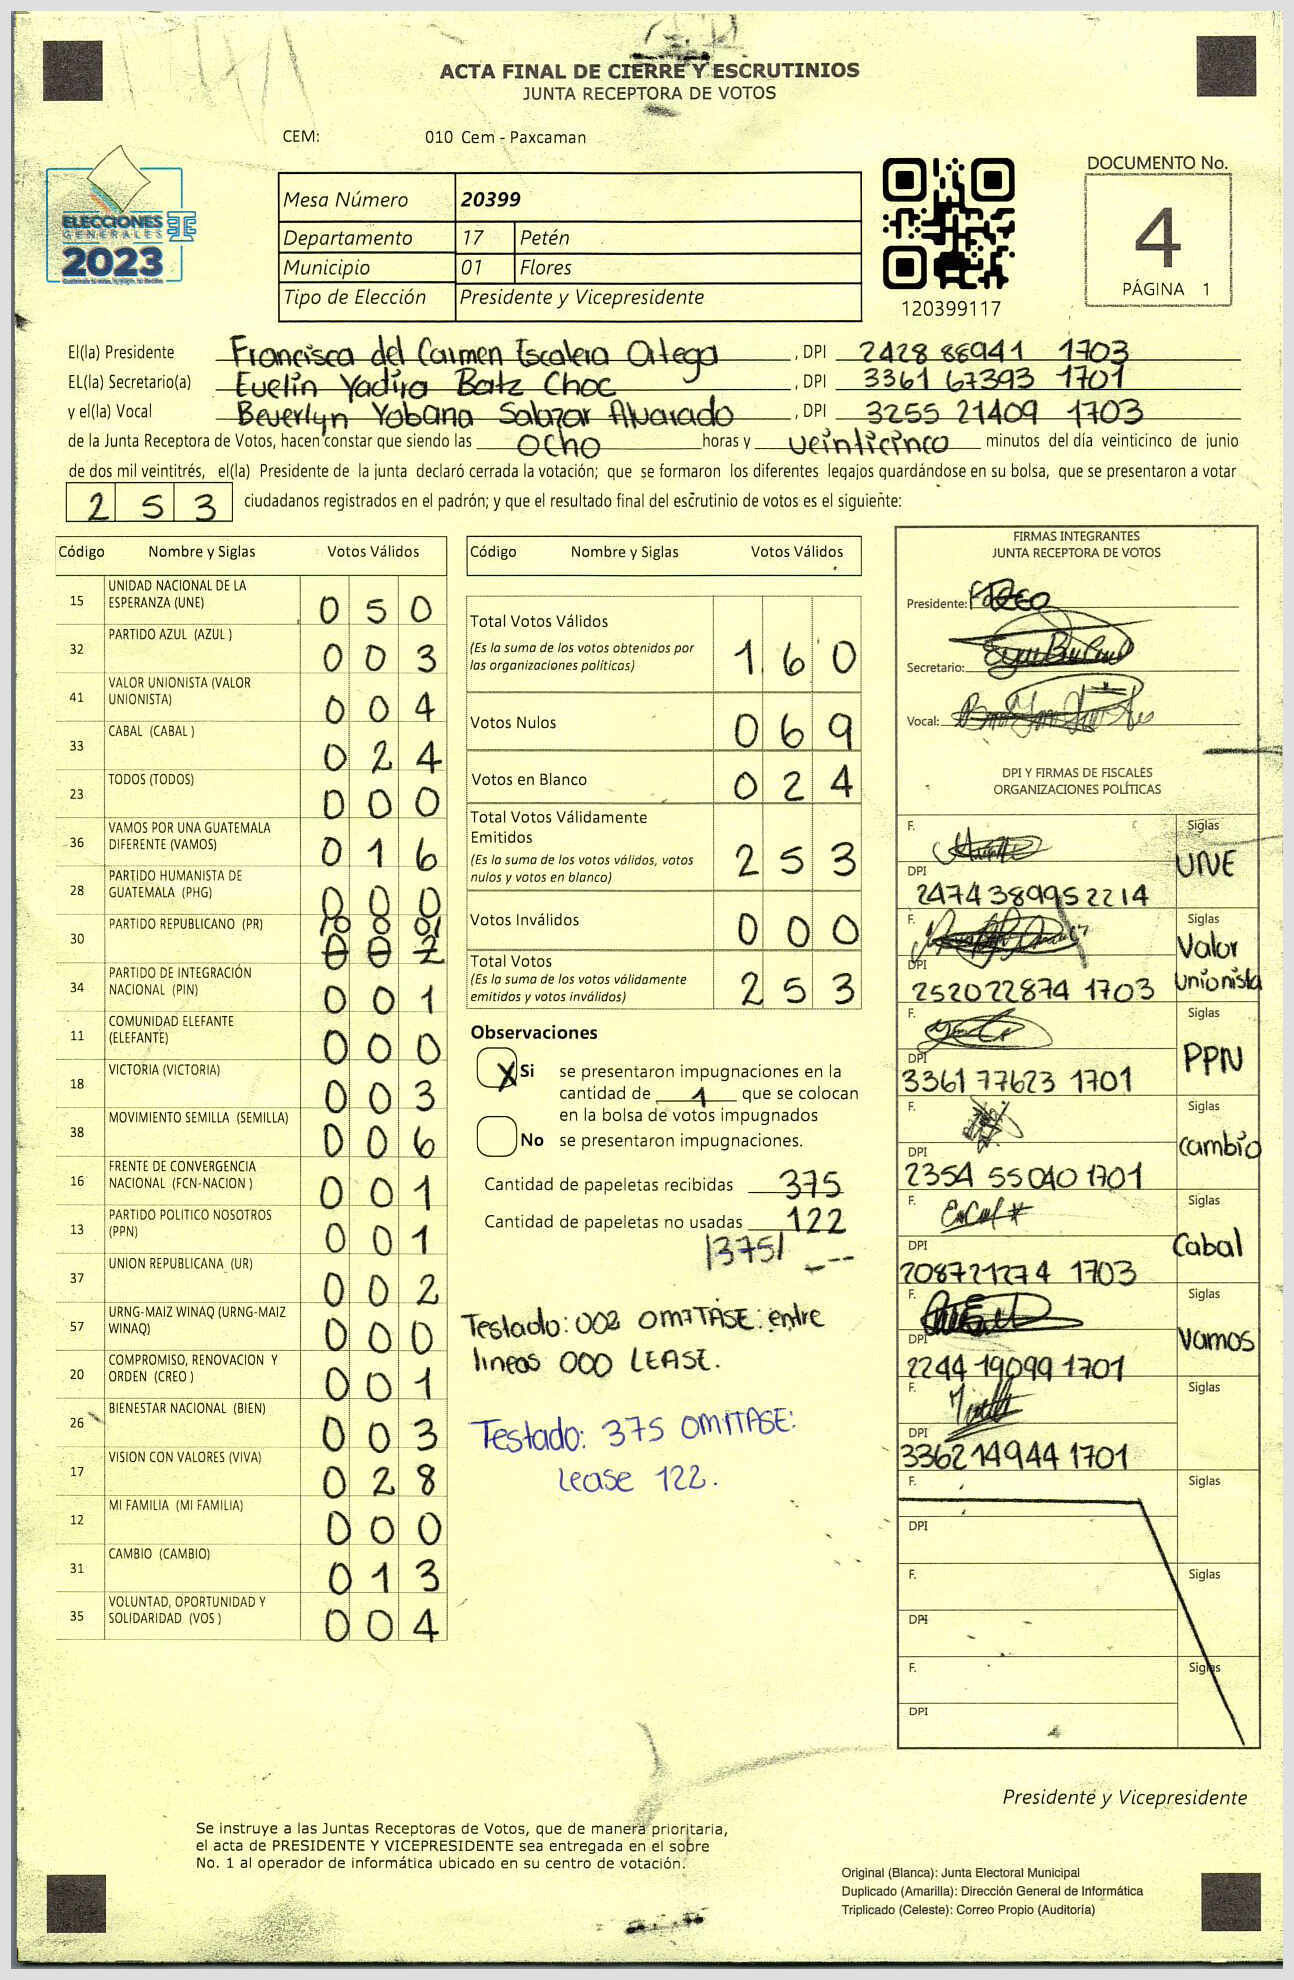 ACTA FINAL DE CIERRE Y ESCRUTINIOS
JUNTA RECEPTORA DE VOTOS
CEM: 010 Cem - Paxcaman
ELECCIONES
GENERALES
2023
Mesa Número 20399
Departamento 17 Petén
Municipio 01 Flores
Tipo de Elección Presidente y Vicepresidente
120399117
DOCUMENTO No.
4
PÁGINA 1
El(la) Presidente Francisca del Carmen Escalera Ortega , DPI 2428 88941 1703
EL(la) Secretario(a) Evelin Yadira Batz Choc , DPI 3361 67393 1701
y el(la) Vocal Beverlyn Yobana Salazar Alvarado , DPI 3255 21409 1703
de la Junta Receptora de Votos, hacen constar que siendo las ocho horas y veinticinco minutos del día veinticinco de junio
de dos mil veintitrés, el(la) Presidente de la junta declaró cerrada la votación; que se formaron los diferentes legajos quardándose en su bolsa, que se presentaron a votar
2 5 3 ciudadanos registrados en el padrón; y que el resultado final del escrutinio de votos es el siguiente:
Código Nombre y Siglas Votos Válidos
15 UNIDAD NACIONAL DE LA ESPERANZA (UNE) 0 5 0
32 PARTIDO AZUL (AZUL ) 0 0 3
41 VALOR UNIONISTA (VALOR UNIONISTA) 0 0 4
33 CABAL (CABAL ) 0 2 4
23 TODOS (TODOS) 0 0 0
36 VAMOS POR UNA GUATEMALA DIFERENTE (VAMOS) 0 1 6
28 PARTIDO HUMANISTA DE GUATEMALA (PHG) 0 0 0
30 PARTIDO REPUBLICANO (PR) 0 0 2
34 PARTIDO DE INTEGRACIÓN NACIONAL (PIN) 0 0 1
11 COMUNIDAD ELEFANTE (ELEFANTE) 0 0 0
18 VICTORIA (VICTORIA) 0 0 3
38 MOVIMIENTO SEMILLA (SEMILLA) 0 0 6
16 FRENTE DE CONVERGENCIA NACIONAL (FCN-NACION ) 0 0 1
13 PARTIDO POLITICO NOSOTROS (PPN) 0 0 1
37 UNION REPUBLICANA (UR) 0 0 2
57 URNG-MAIZ WINAQ (URNG-MAIZ WINAQ) 0 0 0
20 COMPROMISO, RENOVACION Y ORDEN (CREO ) 0 0 1
26 BIENESTAR NACIONAL (BIEN) 0 0 3
17 VISION CON VALORES (VIVA) 0 2 8
12 MI FAMILIA (MI FAMILIA) 0 0 0
31 CAMBIO (CAMBIO) 0 1 3
35 VOLUNTAD, OPORTUNIDAD Y SOLIDARIDAD (VOS ) 0 0 4
Código Nombre y Siglas Votos Válidos
Total Votos Válidos 1 6 0
(Es la suma de los votos obtenidos por
las organizaciones políticas)
Votos Nulos 0 6 9
Votos en Blanco 0 2 4
Total Votos Válidamente
Emitidos 2 5 3
(Es la suma de los votos válidos, votos
nulos y votos en blanco)
Votos Inválidos 0 0 0
Total Votos 2 5 3
(Es la suma de los votos válidamente
emitidos y votos inválidos)
Observaciones
X Si se presentaron impugnaciones en la
cantidad de 1 que se colocan
en la bolsa de votos impugnados
No se presentaron impugnaciones.
Cantidad de papeletas recibidas 375
Cantidad de papeletas no usadas 122
|375|
Testado: 002 OMITASE: entre
lineas 000 LEASE.
Testado: 375 OMITASE:
Lease 122.
FIRMAS INTEGRANTES
JUNTA RECEPTORA DE VOTOS
Presidente:
Secretario:
Vocal:
DPI Y FIRMAS DE FISCALES
ORGANIZACIONES POLÍTICAS
F. Siglas
UNE
DPI
2474 38995 2214
F. Siglas
Valor
Unionista
DPI
252022874 1703
F. Siglas
PPN
DPI
3361 77623 1701
F. Siglas
cambio
DPI
2354 55040 1701
F. Siglas
Cabal
DPI
208721274 1703
F. Siglas
Vamos
DPI
2244 19099 1701
F. Siglas
DPI
3362 14944 1701
F. Siglas
DPI
F. Siglas
DPI
F. Siglas
DPI
Presidente y Vicepresidente
Se instruye a las Juntas Receptoras de Votos, que de manera prioritaria,
el acta de PRESIDENTE Y VICEPRESIDENTE sea entregada en el sobre
No. 1 al operador de informática ubicado en su centro de votación.
Original (Blanca): Junta Electoral Municipal
Duplicado (Amarilla): Dirección General de Informática
Triplicado (Celeste): Correo Propio (Auditoría)